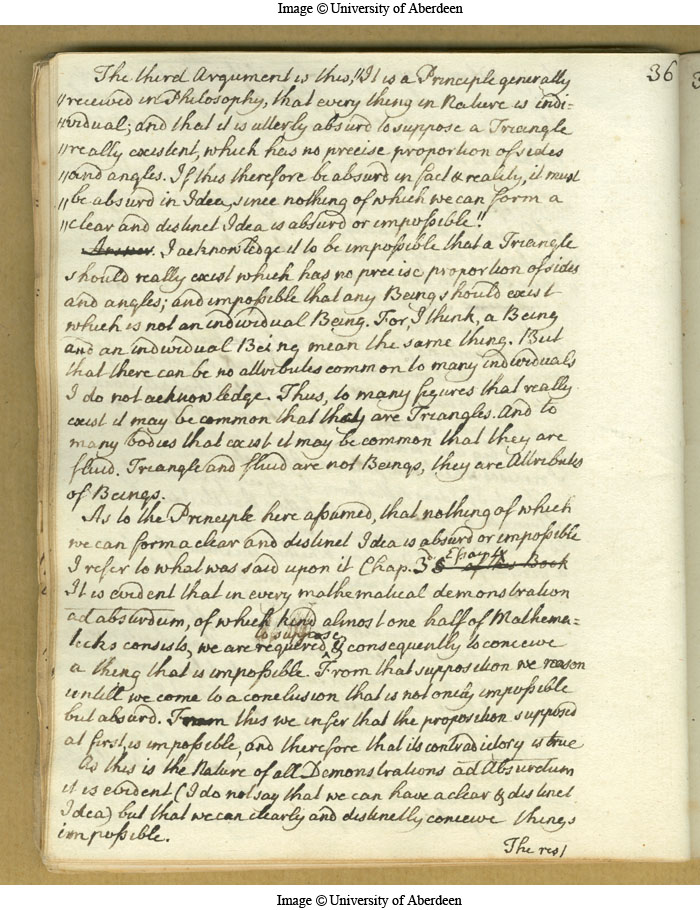 Image © University of Aberdeen
36
The third Argument is this, "It is a Principle generally
"received in Philosophy, that every thing in Nature is indi=
"vidual; and that it is utterly absurd to suppose a Triangle
"really existent, which has no precise proportion of sides
"and angles. If this therefore be absurd in fact & reality, it must
"be absurd in Idea, since nothing of which we can form a
"clear and distinct Idea is absurd or impossible".
Answer. I acknowledge it to be impossible that a Triangle
should really exist which has no precise proportion of sides
and angles; and impossible that any Being should exist
which is not an individual Being. For, I think, a Being
and an individual Being mean the same thing. But
that there can be no attributes common to many individuals
I do not acknowledge. Thus, to many figures that really
exist it may be common that they are Triangles. And to
many bodies that exist it may be common that they are
fluid. Triangle and fluid are not Beings, they are Attributes
of Beings.
As to the Principle here assumed, that nothing of which
we can form a clear and distinct Idea is absurd or impossible
I refer to what was said upon it Chap. 3d. Essay IV of this Book
It is evident that in every mathematical demonstration
ad absurdum, of which kind almost one half of Mathema=
to suppose
ticks consists, we are required, & consequently to conceive
a thing that is impossible. From that supposition we reason
untill we come to a conclusion that is not only impossible
but absurd. From this we infer that the proposition supposed
at first is impossible, and therefore that its contradictory is true
As this is the Nature of all Demonstrations ad Absurdum
it is evident (I do not say that we can have a clear & distinct
Idea) but that we can clearly and distinctly conceive things
impossible.
The rest
Image © University of Aberdeen